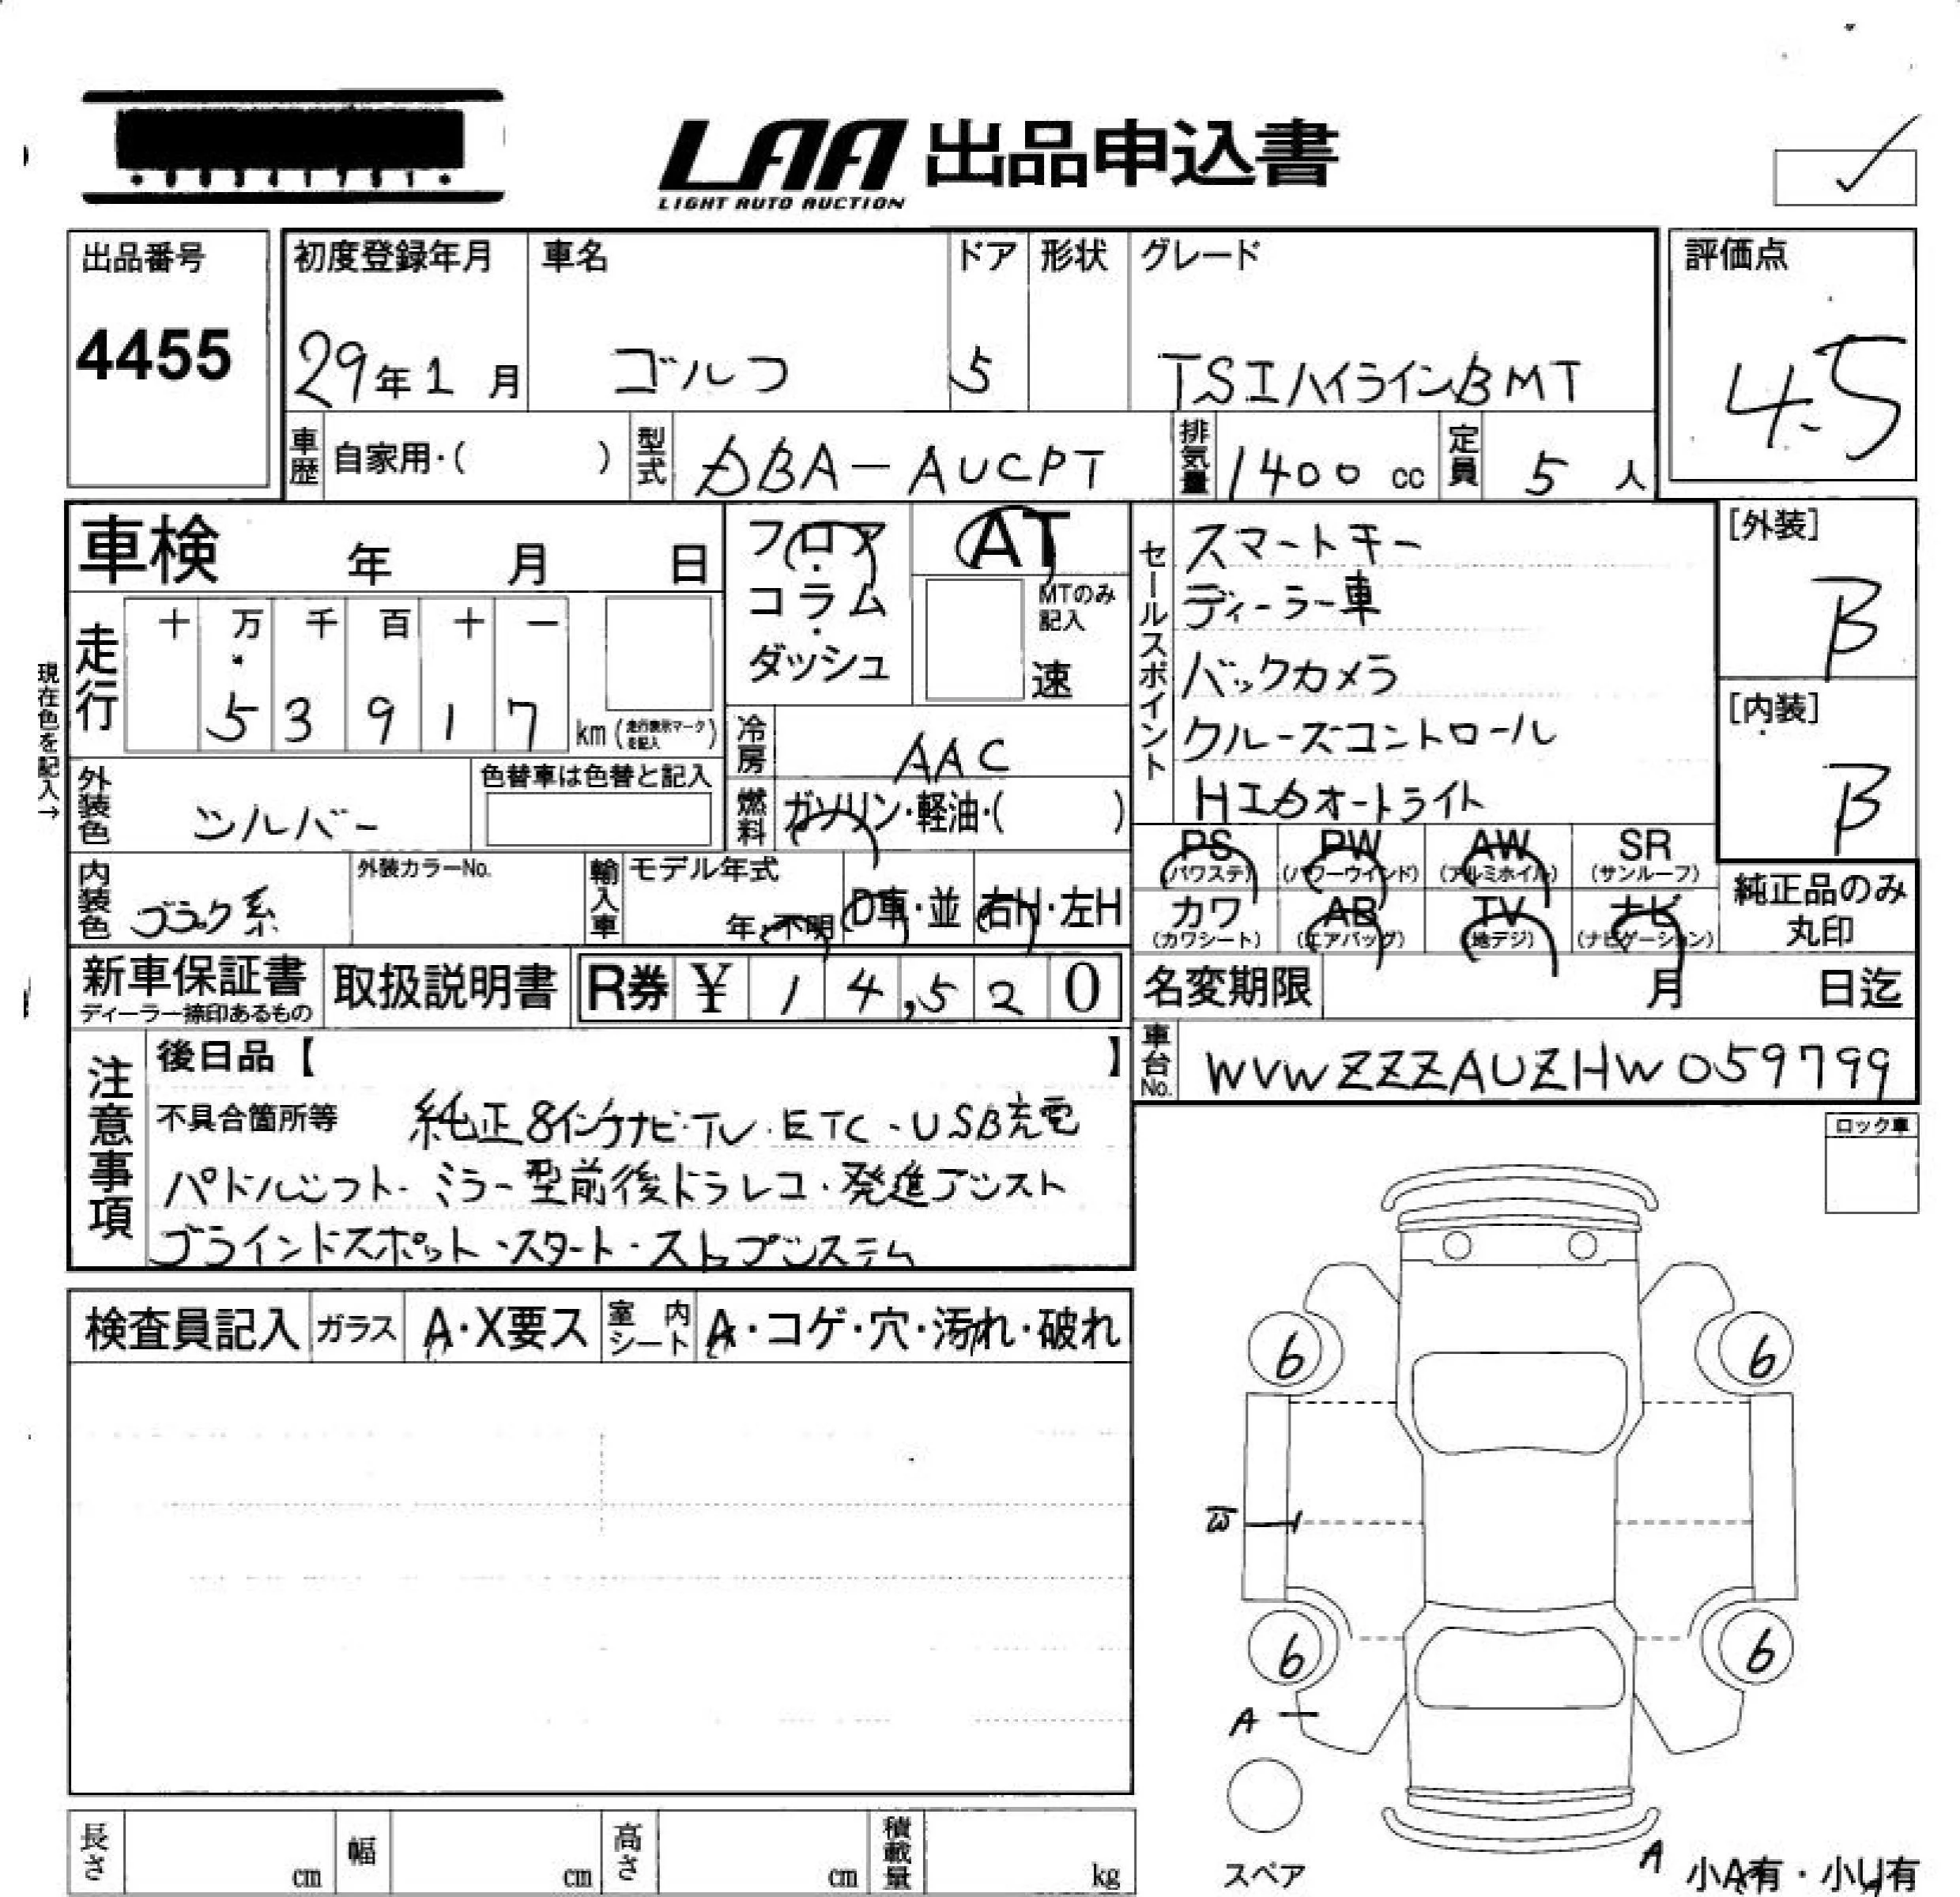 LAA 出品申込書
LIGHT AUTO AUCTION
出品番号
4455
初度登録年月
29年1月
車名
ゴルフ
ドア
5
形状
グレード
TSIハイラインBMT
評価点
4.5
車歴 自家用・( )
型式 DBA-AUCPT
排気量 1400 cc
定員 5 人
車検 年 月 日
現在色を記入→
走行
十 万 千 百 十 一
5 3 9 1 7
km (走行表示マークを記入)
フロア・コラム・ダッシュ
AT
MTのみ記入
速
冷房 AAC
燃料 ガソリン・軽油・( )
セールスポイント
スマートキー
ディーラー車
バックカメラ
クルーズコントロール
HIDオートライト
[外装]
B
[内装]
B
外装色 シルバー
色替車は色替と記入
内装色 ブラック系
外装カラーNo.
輸入車
モデル年式
年・不明
D車・並
右H・左H
PS (パワステ)
PW (パワーウインド)
AW (アルミホイル)
SR (サンルーフ)
カワ (カワシート)
AB (エアバッグ)
TV (地デジ)
ナビ (ナビゲーション)
純正品のみ丸印
新車保証書
ディーラー捺印あるもの
取扱説明書
R券 ¥ 14,520
名変期限 月 日迄
車台No. WVWZZZAUZHW059799
注意事項
後日品【 】
不具合箇所等 純正8インチナビ・TV・ETC・USB充電
パドルシフト・ミラー型前後ドラレコ・発進アシスト
ブラインドスポット・スタート・ストップシステム
ロック車
検査員記入
ガラス A・X要ス
室内シート A・コゲ・穴・汚れ・破れ
6 6
W
6 6
A
スペア
A
小A有・小U有
長さ cm
幅 cm
高さ cm
積載量 kg